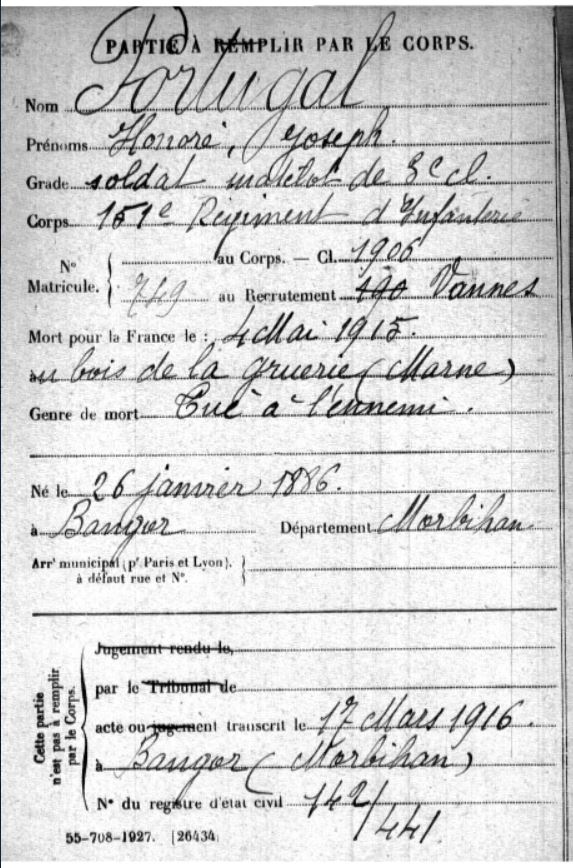 PARTIE À REMPLIR PAR LE CORPS.
Nom Portugal
Prénoms Honoré, Joseph.
Grade soldat matelot de 3e cl.
Corps 151e Régiment d'Infanterie
N° Matricule. { au Corps. — Cl. 1906
749 au Recrutement 190 Vannes
Mort pour la France le : 4 Mai 1915.
au bois de la gruerie (Marne)
Genre de mort Tué à l'ennemi.
Né le 26 janvier 1886.
à Bangor Département Morbihan
Arrt municipal (pr Paris et Lyon), }
à défaut rue et N°.
Cette partie
n'est pas à remplir
par le Corps.
Jugement rendu le,
par le Tribunal de
acte ou jugement transcrit le 17 Mars 1916.
à Bangor (Morbihan)
N° du registre d'état civil 142/441
55-708-1927. [26434]